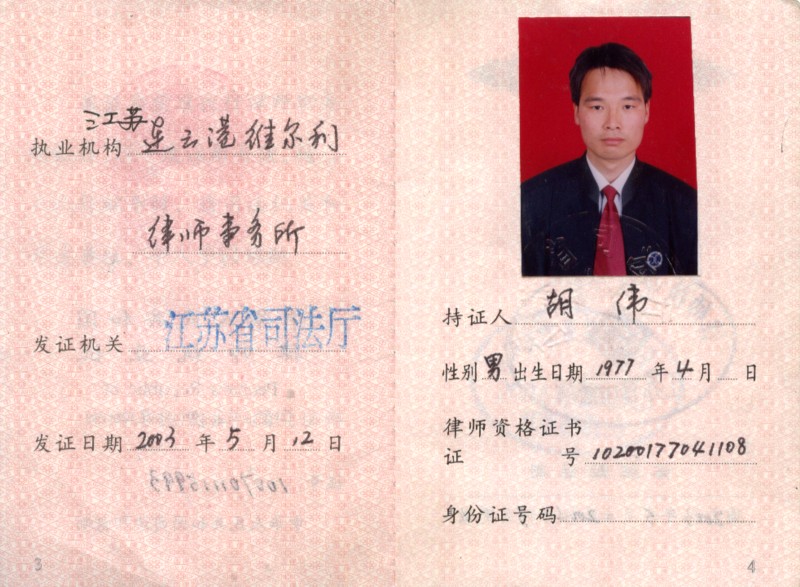 江苏
执业机构 连云港维尔利
律师事务所
发证机关 江苏省司法厅
发证日期 2003 年 5 月 12 日
3
持证人 胡伟
性别 男 出生日期 1977 年 4 月 日
律师资格证书
证 号 10200177041108
身份证号码
4